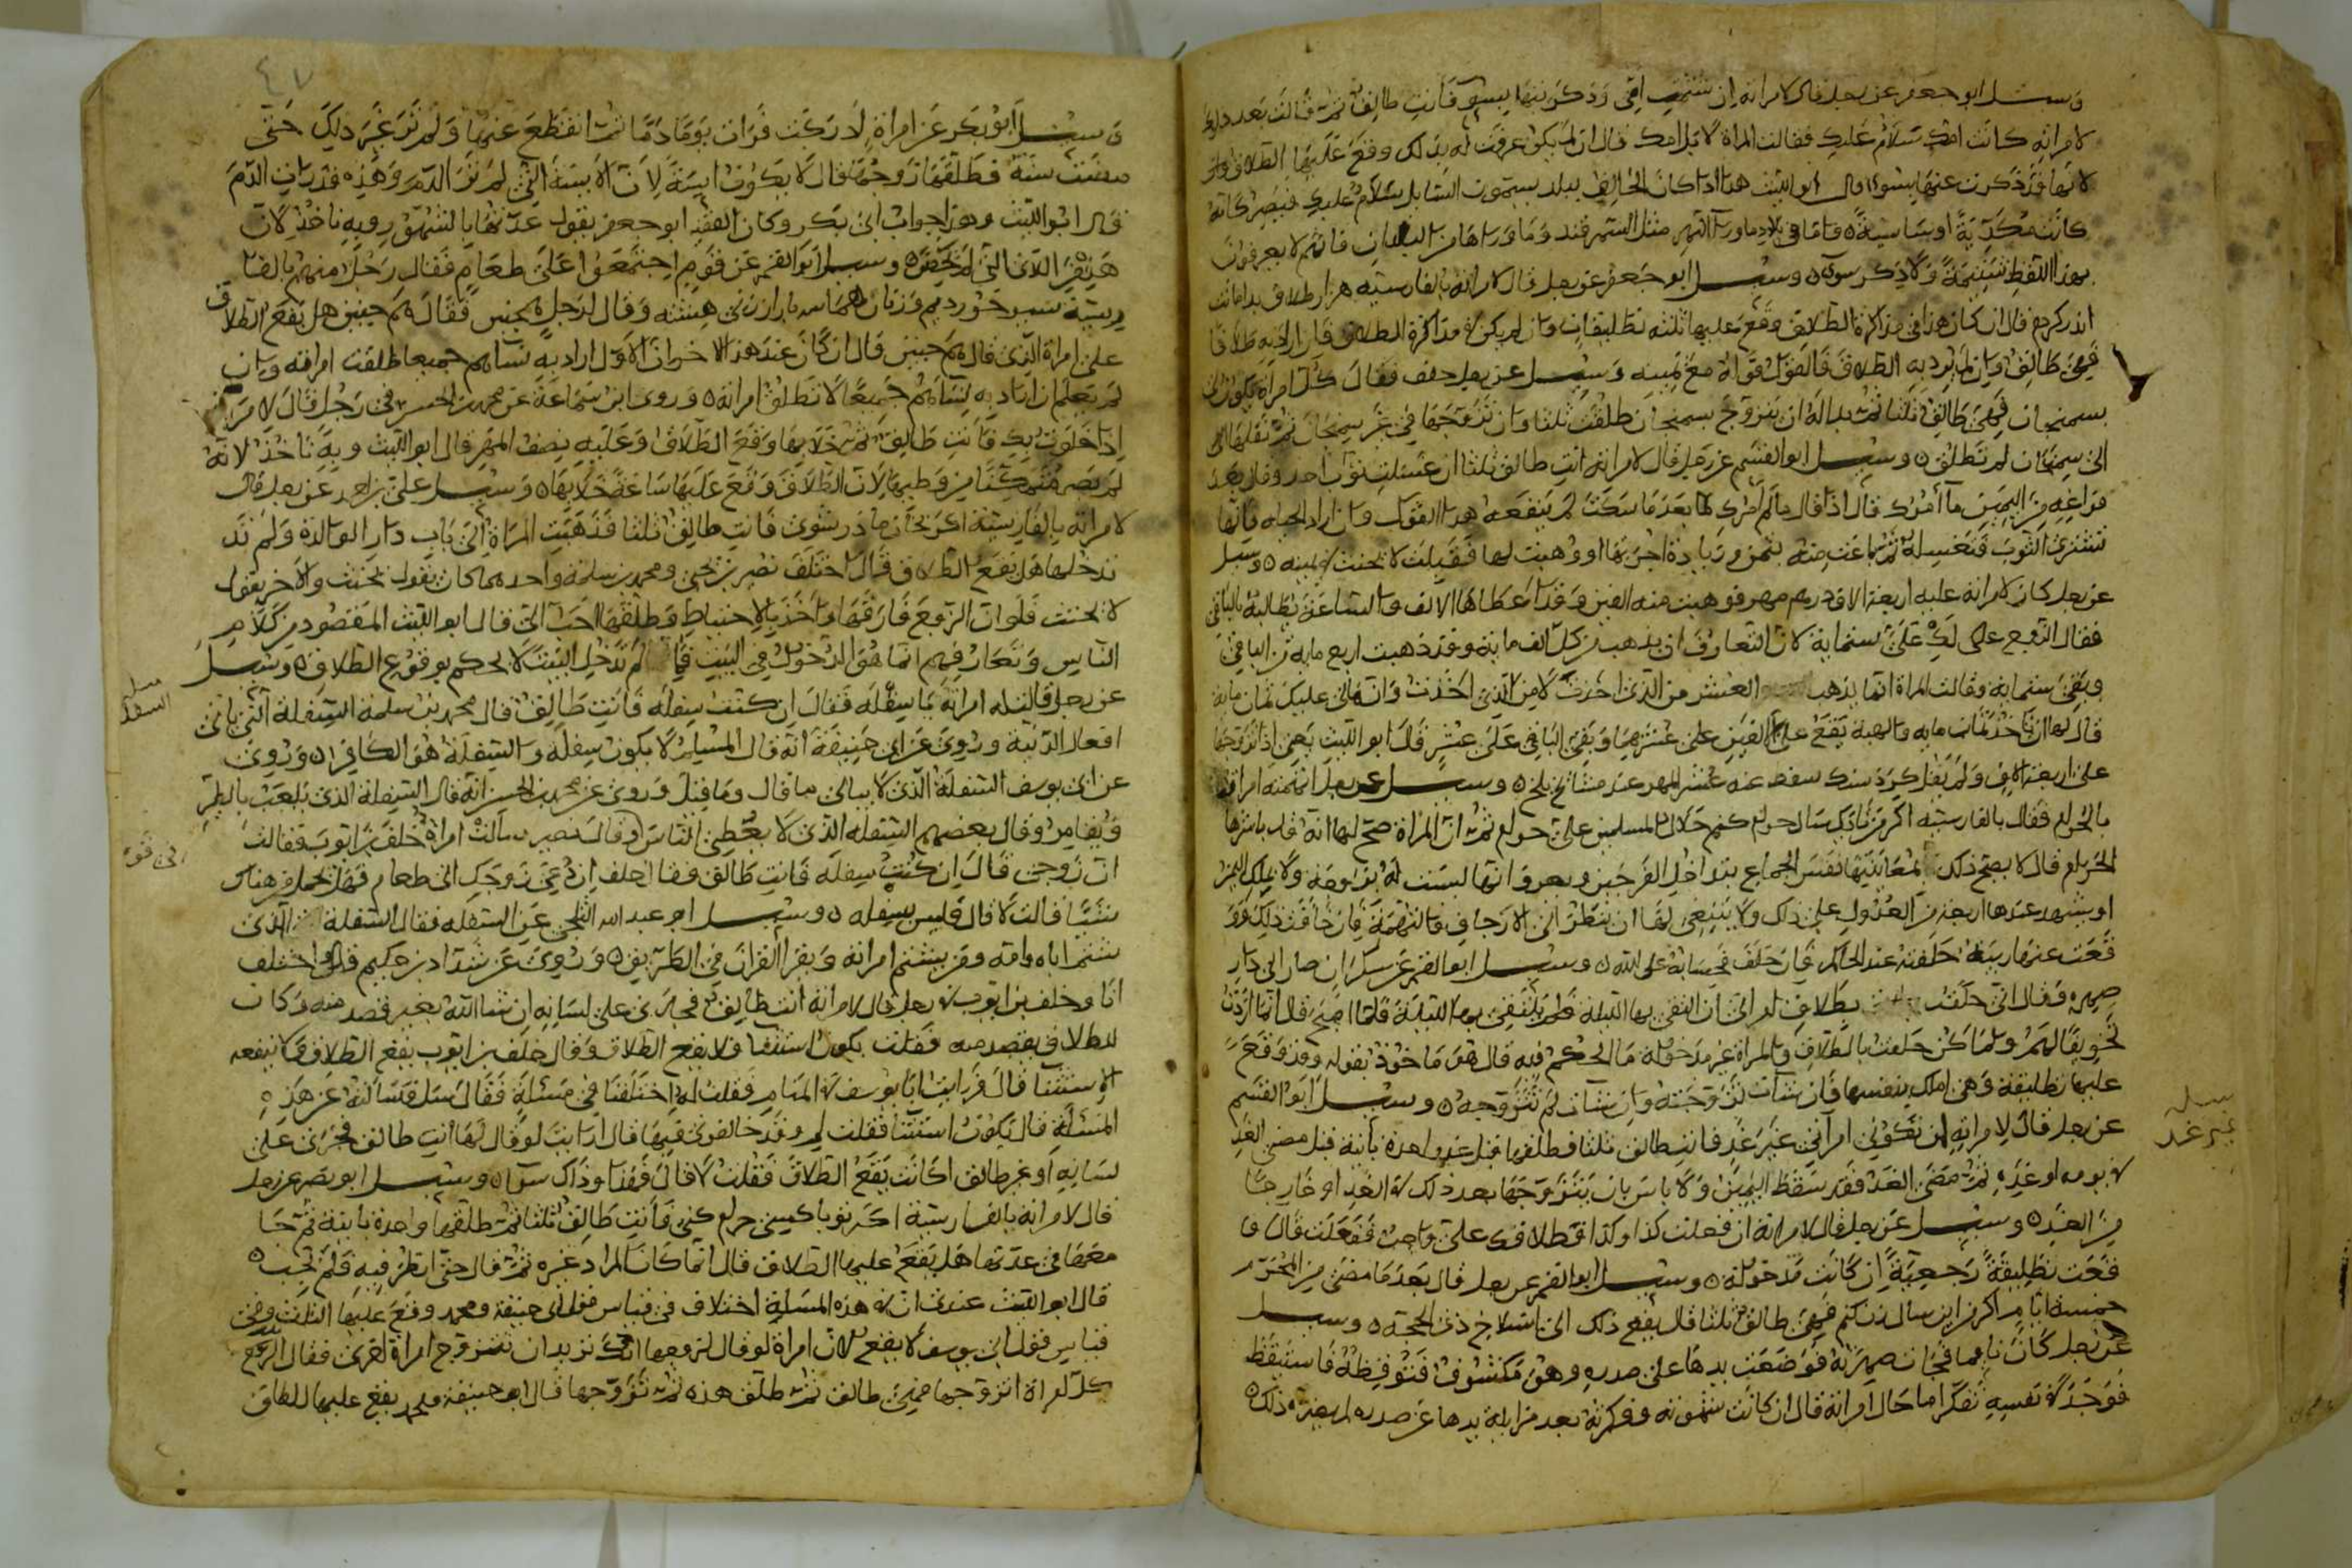 وسئل ابو جعفر عن رجل قال لامراته ان شتمت امي وذكرتها بسوء فانت طالق ثم قالت بعد ذلك
لامراته كانت امك سلام عليك فقالت المراة لا بل امك قال ان لم يكن عرفت له بذلك وقع عليها الطلاق
لانها قد ذكرت عنها بسوء وقال ابو الليث هذا اذا كان الحالف ببلد يسمون السايل سلام عليك فيصير كانه
كانت مكدية او سايلة فاما في بلاد ما ورآ النهر مثل السمرقند وما وراها من البلدان فانهم لا يعرفون
بهذا اللفظ شتيمة ولا ذكر سوء وسئل ابو جعفر عن رجل قال لامراته بالفارسيه هزار طلاق بدامانت
اندر كردم قال ان كان هذا في مذاكرة الطلاق وقع عليها ثلثه تطليقات وان لم يكن في مذاكرة الطلاق فان اراد به طلاقا
فهي طالق وان لم يرد به الطلاق فالقول قوله مع يمينه وسئل عن رجل حلف فقال كل امراة يكون لي
بسمنجان فهي طالق ثلثا ثم بدا له ان يتزوج بسمنجان طلقت ثلثا وان تزوجها في غير سمنجان ثم نقلها
الى سمنجان لم تطلق وسئل ابو القسم عن رجل قال لامراته انت طالق ثلثا ان غسلت ثوب احد وقال بعد
فراغه من اليمين ما آمرك قال اذا قال ما لم آمرك بعد ما سكت لم ينفعه هذا القول وان اراد الحيله فانها
تشتري الثوب فتغسله ثم باعت منه بثمن وزيادة اجرتها او وهبت لها فقبلت لا يحنث في يمينه وسئل
عن رجل كان لامراته عليه اربعة الاف درهم مهر فوهبت منه الفين وقد اعطاها الالف والساعة يطالبه بالباقي
فقال الزوج على لك علي ستماية لان التعارف ان يذهب من كل الف ماية وقد ذهبت اربع مايه من الباقي
وبقي ستماية وقالت المراة انما يذهب العشر من الذي اخذت لا من الذي اخذت وان لي عليك ثمان ماية
قال لها ان تاخذ ثمان مايه والهبة يقع على الفين على عشرهما وبقي الباقي على عشر قال ابو الليث يعني اذا تزوجها
على اربعة الاف ولم يقل كرد سنك سقط عنه عشر المهر عند مشائخ بلخ وسئل عن رجل اتهمته امراته
بالحرام فقال بالفارسيه اكر من تا يك سال حرام كنم حلال المسلمين علي حرام ثم ان المراة صح لها انه قد باشرها
الحرام قال لا يصح ذلك الا بمعاينتها نفس الجماع بتداخل الفرجين ويعرف انها ليست له بزوجة ولا ملك اليمين
او يشهد عندها اربعة من العدول على ذلك ولا ينبغي لها ان تنظر الى الارجاف والتهمة فان خافت ذلك ور
فعت عنها ريبة حلفته عند الحاكم فان حلف فحسابه على الله وسئل ابو القسم عن سكران صار الى دار
صهره فقال اني حلفت بطلاق امراتي ان التقي بها الليلة فلم يلتقي بها الليلة فلما اصبح قال انما اردت
تخويفا لهم ولم اكن حلفت بالطلاق والمراة غير مدخوله ما الحكم فيه قال هو ماخوذ بقوله وقد وقع
عليها تطليقة وهي املك بنفسها فان شات تزوجته وان شات لم تتزوجه وسئل ابو القسم
عن رجل قال لامراته ان تكوني امراتي غير غد فانت طالق ثلثا فطلقها قبل غد واحدة بائنة قبل مضي الغد
في يومه او غده ثم مضى الغد فقد سقط اليمين ولا باس بان يتزوجها بعد ذلك في الغد او خارجا
من الغد وسئل عن رجل قال لامراته ان فعلت كذا وكذا فطلاقك علي واجب ففعلت قال و
قعت تطليقة رجعية ان كانت مدخولة وسئل ابو القسم عن رجل قال بعد ما مضى من المحرم
خمسة ايام اكر من اين سال زن كنم فهي طالق ثلثا قال يقع ذلك الى انسلاخ ذي الحجة وسئل
عن رجل كان نايما فجات صهرته فوضعت يدها على صدره وهو مكشوف فتوقظه فاستيقظ
فوجد في نفسه تفكرا ما حال امراته قال ان كانت شهوته وفكرته بعد مزايلة يدها عن صدره لم يضره ذلك
مسله
غير غد
٤٧
وسئل ابو بكر عن امراة ادركت فرات يوما دما ثم انقطع عنها ولم تر غير ذلك حتى
مضت سنة فطلقها زوجها قال لا يكون آيسة لان الآيسة التي لم تر الدم وهذه قد رات الدم
قال ابو الليث وهذا جواب ابي بكر وكان الفقيه ابو جعفر يقول عدتها بالشهور وبه ناخذ لان
هذه من اللائي لم يحضن وسئل ابو القسم عن قوم اجتمعوا على طعام فقال رجل منهم بالفا
رسية سير خورديم وزنان هماسه باراز زني هشته وقال لرجل همچنين فقال هم چنين هل يقع الطلاق
على امراة الذي قال هم چنين قال ان كان عند هذا الاخر ان الاول اراد به نساهم جميعا طلقت امراته وان
لم يعلم ان اراد به نساهم جميعا لا تطلق امراته وروى ابن سماعة عن محمد بن الحسن في رجل قال لامراته
اذا خلوت بك فانت طالق ثم خلا بها وقع الطلاق وعليه نصف المهر قال ابو الليث وبه ناخذ لانه
لم يصر متمكنا من وطيها لان الطلاق وقع عليها ساعة خلا بها وسئل علي بن احمد عن رجل قال
لامراته بالفارسية اكر بخان مادر شوي فانت طالق ثلثا فذهبت المراة الى باب دار الوالدة ولم تد
تدخلها هل يقع الطلاق قال اختلف نصير بن يحيى ومحمد بن سلمة واحدهما كان يقول يحنث والاخر يقول
لا يحنث فلو ان الزوج فارقها واخذ بالاحتياط وطلقها احب الي قال ابو الليث المقصود من كلام
الناس وتعارفهم انما هو الدخول في البيت فما لم تدخل البيت لا يحكم بوقوع الطلاق وسئل
عن رجل قالت له امراته يا سفله فقال ان كنت سفله فانت طالق قال محمد بن سلمة السفلة الذي ياتي
افعال الدنية وروي عن ابي حنيفة انه قال المسلم لا يكون سفلة والسفلة هو الكافر وروي
عن ابي يوسف السفلة الذي لا يبالي ما قال وما قيل وروي عن محمد بن الحسن انه قال السفلة الذي يلعب بالطير
ويقامر وقال بعضهم السفله الذي لا يعطي الناس وقال نصير سالت امراة خلف بن ايوب فقالت
ان زوجي قال ان كنت سفله فانت طالق فقال خلف ان دعي زوجك الى طعام فهل يحمل من هناك
شيئا قالت لا قال فليس بسفله وسئل ابو عبد الله البلخي عن السفله فقال السفلة الذي
شتم اباه وامه ومن يشتم امراته ويقرا القران في الطريق وروي عن شداد بن حكيم قال اختلف
انا وخلف بن ايوب في رجل قال لامراته انت طالق فجرى على لسانه ان شا الله بغير قصد منه وكان
للطلاق بقصد منه فقلت يكون استثنا ولا يقع الطلاق وقال خلف بن ايوب يقع الطلاق ولا ينفعه
الاستثنا قال فرايت ابا يوسف في المنام فقلت له اختلفنا في مسئلة فقال سل فسالته عن هذه
المسئلة قال يكون استثنا فقلت لم وقد خالفوني فيها قال ارايت لو قال لها انت طالق فجرى على
لسانه او غير طالق اكانت يقع الطلاق فقلت لا قال فهذا وذاك سوآ وسئل ابو نصر عن رجل
قال لامراته بالفارسية اكر تو با كسي حرام كني فانت طالق ثلثا ثم طلقها واحدة بائنة ثم جا
معها في عدتها هل يقع عليها الطلاق قال انما كان المراد غيره ثم قال حتى انظر فيه فلم يجب
قال ابو الليث عندي ان في هذه المسلة اختلاف في قياس قول ابي حنيفة ومحمد وقع عليها الثلث وفي
قياس قول ابي يوسف لا يقع لان امراة لو قال لزوجها انك تريد ان تتزوج امراة اخرى فقال الزوج
كل امراة اتزوجها فهي طالق ثم طلق هذه ثم تزوجها قال ابو حنيفة ومحمد يقع عليها الطلاق
مسله
السفله